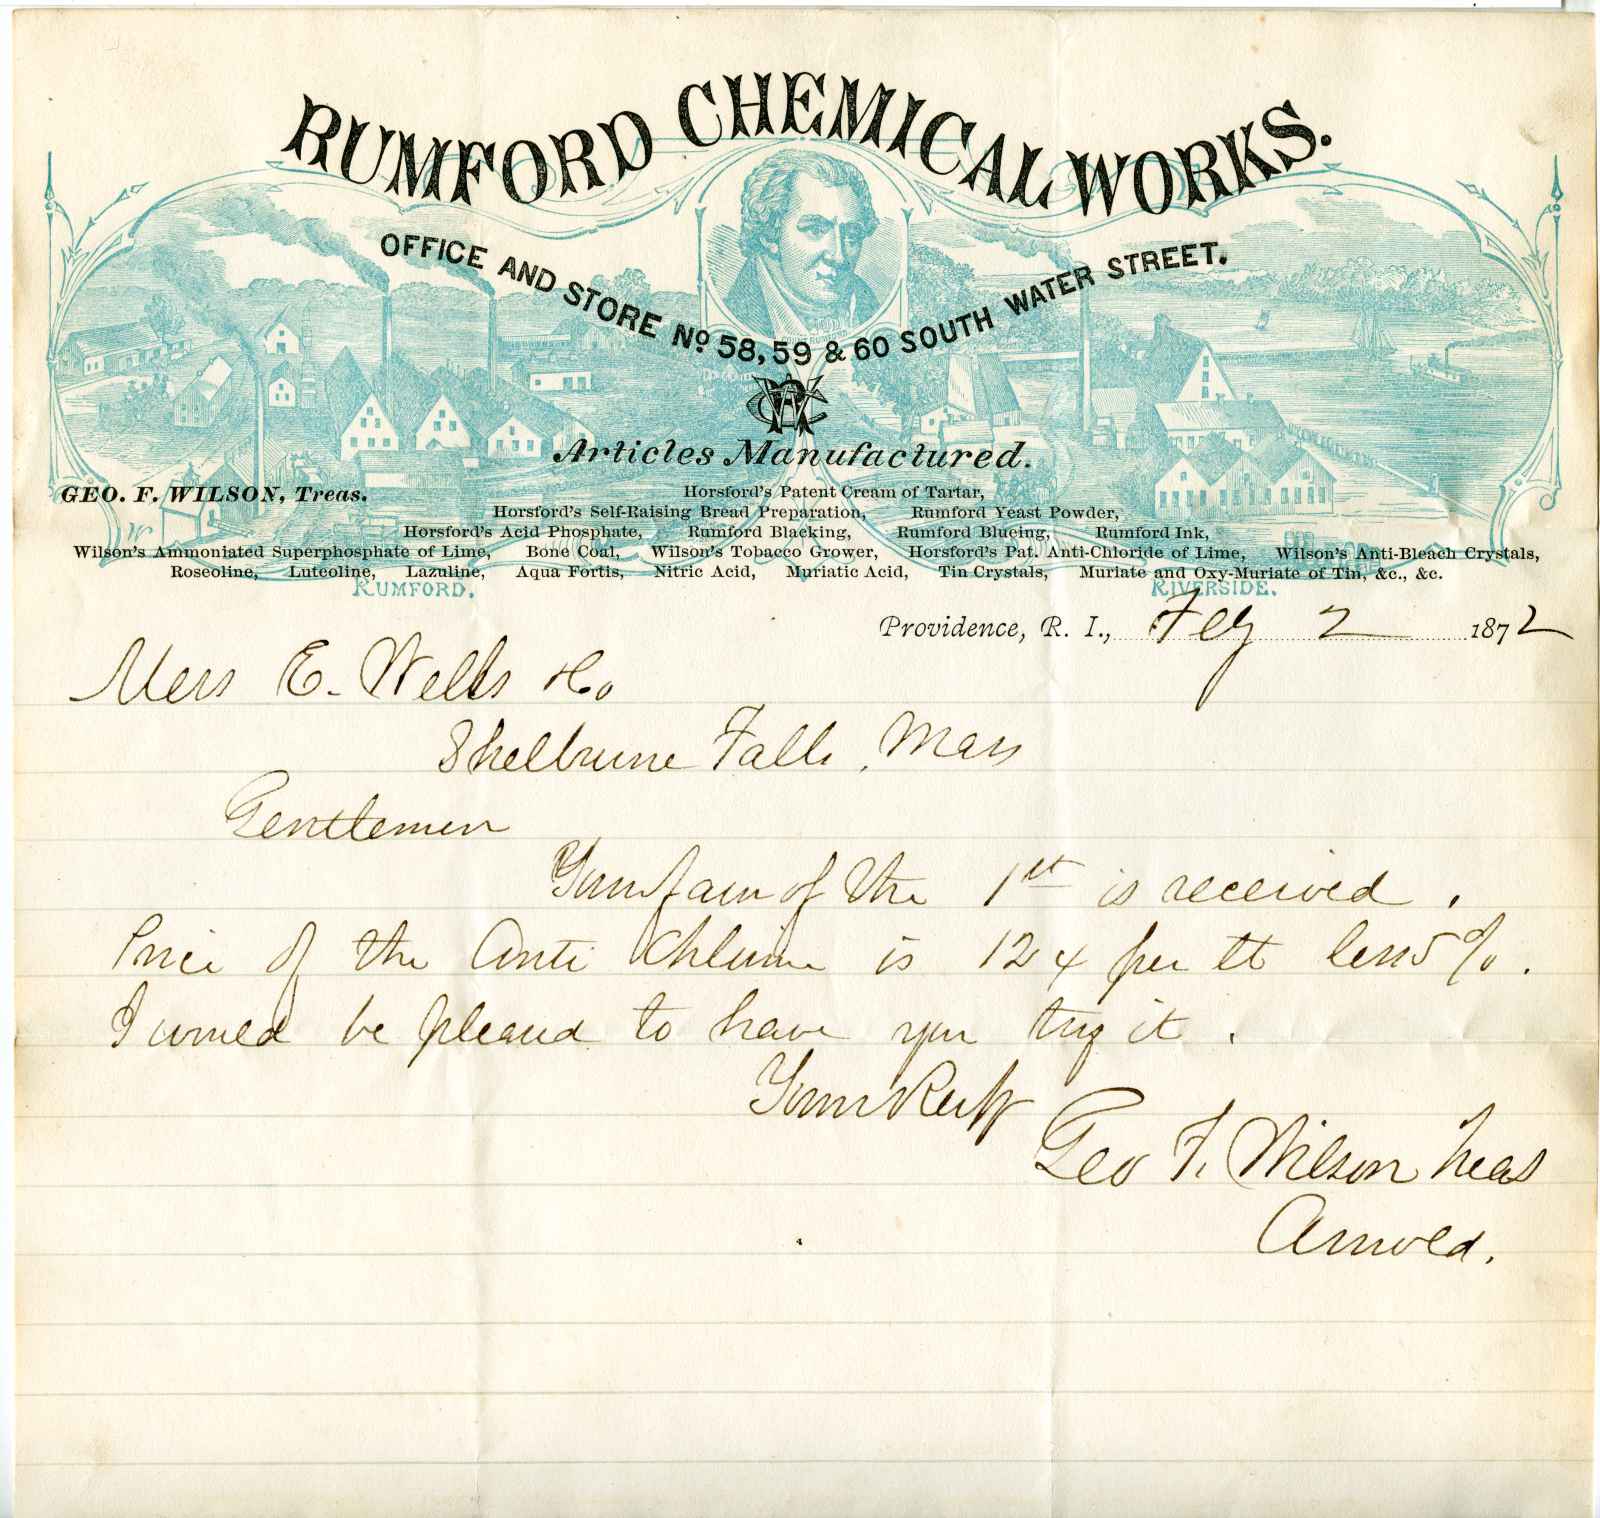 RUMFORD CHEMICAL WORKS.
OFFICE AND STORE No. 58, 59 & 60 SOUTH WATER STREET.
Articles Manufactured.
GEO. F. WILSON, Treas.
Horsford's Patent Cream of Tartar,
Horsford's Self-Raising Bread Preparation, Rumford Yeast Powder,
Horsford's Acid Phosphate, Rumford Blacking, Rumford Blueing, Rumford Ink,
Wilson's Ammoniated Superphosphate of Lime, Bone Coal, Wilson's Tobacco Grower, Horsford's Pat. Anti-Chloride of Lime, Wilson's Anti-Bleach Crystals,
Roseoline, Luteoline, Lazuline, Aqua Fortis, Nitric Acid, Muriatic Acid, Tin Crystals, Muriate and Oxy-Muriate of Tin, &c., &c.
RUMFORD. RIVERSIDE.
Providence, R. I., Feby 2 1872
Mess E. Wells & Co
Shelburne Falls, Mass
Gentlemen
Your favor of the 1st is received.
Price of the Anti Chlorine is 12 ¢ per lb less 5%.
I would be pleased to have you try it.
Yours Respy
Geo F. Wilson Treas
Arnold.